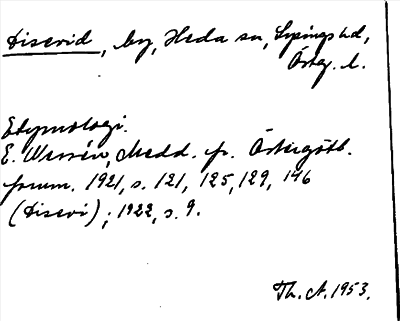 Disevid, by, Heda sn, Lysings hd,
Österg. l.
Etymologi.
E. Wessén, Medd. fr. Östergötl.
fornm. 1921, s. 121, 125, 129, 146
(Disevi); 1922, s. 9.
Th. A. 1953.